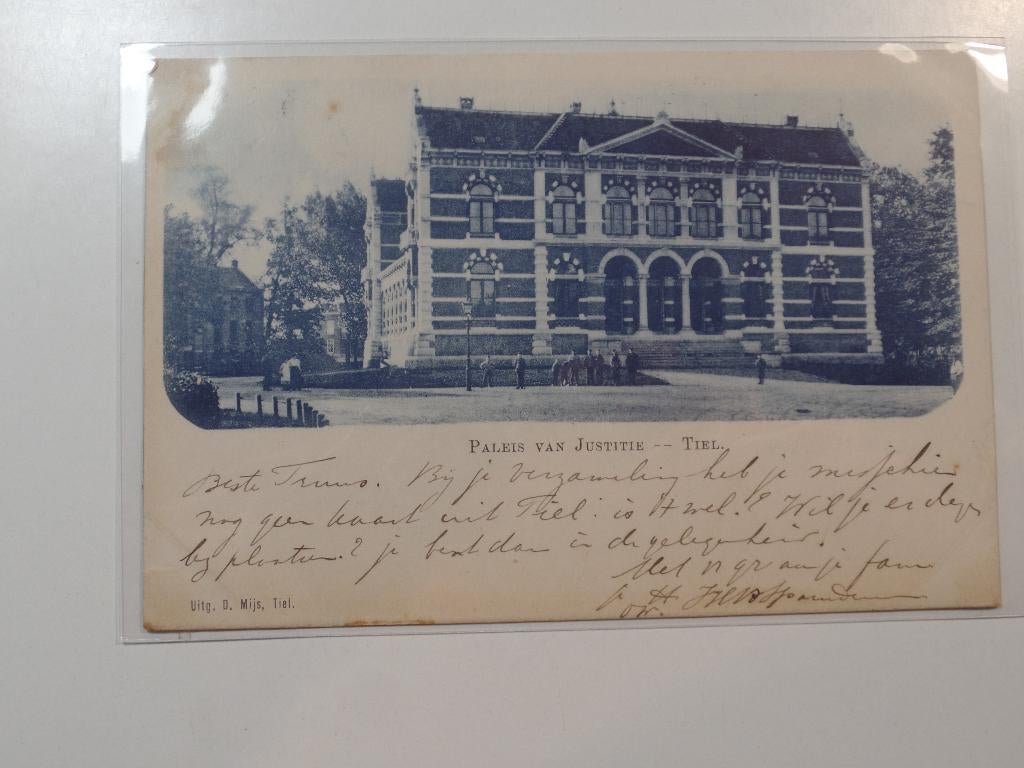 PALEIS VAN JUSTITIE -- TIEL.
Beste Truus. Bij je verzameling heb je misschien
nog geen kaart uit Tiel: is 't wel? Wil je er deze
bij plaatsen? je bent dan in de gelegenheid.
Met vr gr aan je fam
Uitg. D. Mijs, Tiel.